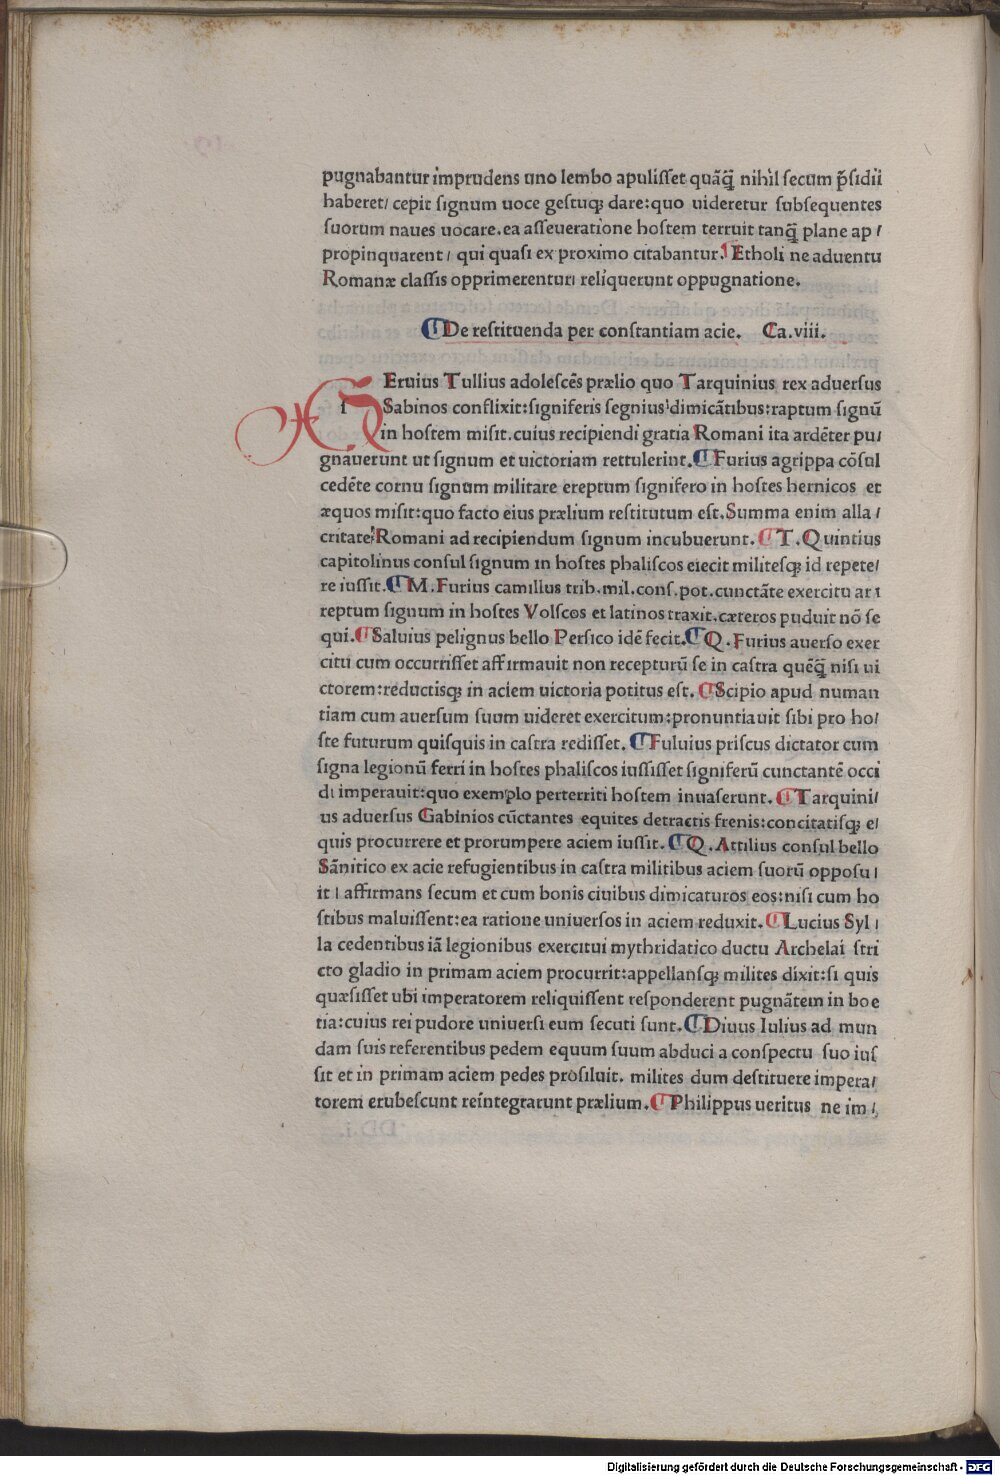 pugnabantur imprudens uno lembo apulisset quãq̃ nihil secum p̃sidii
haberet/ cepit signum uoce gestuq; dare:quo uideretur subsequentes
suorum naues uocare.ea asseueratione hostem terruit tanq̃ plane ap/
propinquarent/ qui quasi ex proximo citabantur. ¶Etholi ne aduentu
Romanæ classis opprimerentur/ reliquerunt oppugnatione.
¶De restituenda per constantiam acie. Ca.viii.
Eruius Tullius adolescẽs prælio quo Tarquinius rex aduersus
Sabinos conflixit:signiferis segnius dimicãtibus:raptum signũ
in hostem misit.cuius recipiendi gratia Romani ita ardẽter pu/
gnauerunt ut signum et uictoriam rettulerint. ¶Furius agrippa cõsul
cedẽte cornu signum militare ereptum signifero in hostes hernicos et
æquos misit:quo facto eius prælium restitutum est.Summa enim alla/
critate Romani ad recipiendum signum incubuerunt. ¶T.Quintius
capitolinus consul signum in hostes phaliscos eiecit militesq; id repete/
re iussit. ¶M.Furius camillus trib.mil.cons.pot.cunctãte exercitu ar
reptum signum in hostes Volscos et latinos traxit.cæteros puduit nõ se
qui. ¶Saluius pelignus bello Persico idẽ fecit. ¶Q.Furius auerso exer
citu cum occurrisset affirmauit non recepturũ se in castra quẽq̃ nisi ui
ctorem:reductisq; in aciem uictoria potitus est. ¶Scipio apud numan
tiam cum auersum suum uideret exercitum:pronuntiauit sibi pro ho/
ste futurum quisquis in castra redisset. ¶Fuluius priscus dictator cum
signa legionũ ferri in hostes phaliscos iussisset signiferũ cunctantẽ occi
di imperauit:quo exemplo perterriti hostem inuaserunt. ¶Tarquini/
us aduersus Gabinios cũctantes equites detractis frenis:concitatisq; e/
quis procurrere et prorumpere aciem iussit. ¶Q.Attilius consul bello
Sãnitico ex acie refugientibus in castra militibus aciem suorũ opposu/
it/ affirmans secum et cum bonis ciuibus dimicaturos eos:nisi cum ho
stibus maluissent:ea ratione uniuersos in aciem reduxit. ¶Lucius Syl/
la cedentibus iã legionibus exercitui mythridatico ductu Archelai stri
cto gladio in primam aciem procurrit:appellansq; milites dixit:si quis
quæsisset ubi imperatorem reliquissent responderent pugnãtem in boe
tia:cuius rei pudore uniuersi eum secuti sunt. ¶Diuus Iulius ad mun
dam suis referentibus pedem equum suum abduci a conspectu suo ius
sit et in primam aciem pedes prosiluit. milites dum destituere impera/
torem erubescunt reintegrarunt prælium. ¶Philippus ueritus ne im/
Digitalisierung gefördert durch die Deutsche Forschungsgemeinschaft - DFG